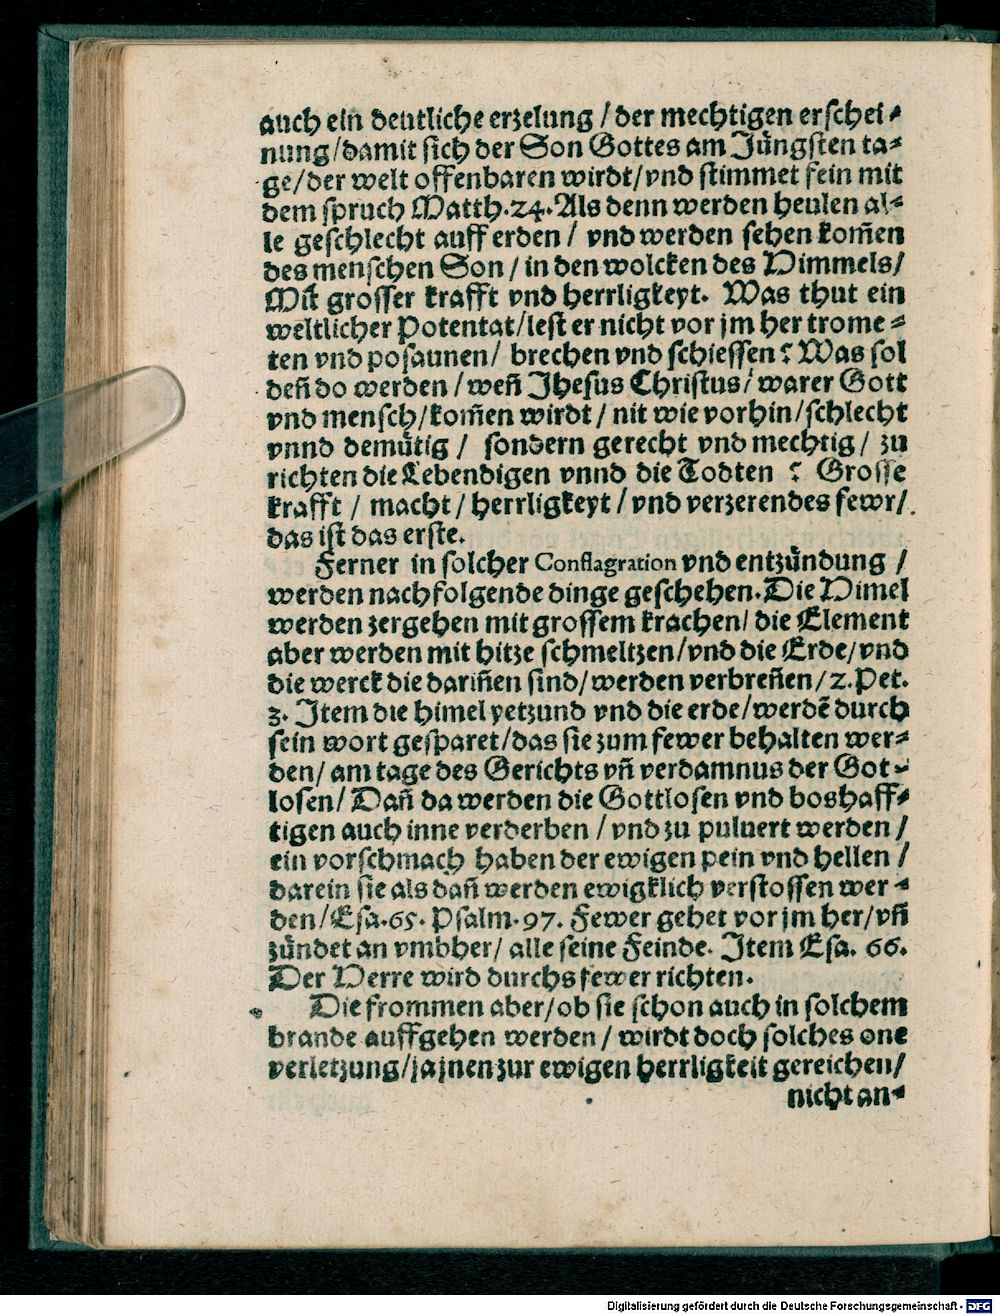 auch ein deutliche erzelung / der mechtigen erschei⸗
nung/damit sich der Son Gottes am Jüngsten ta⸗
ge/der welt offenbaren wirdt/vnd stimmet fein mit
dem spruch Matth.24. Als denn werden heulen al⸗
le geschlecht auff erden / vnd werden sehen kom̃en
des menschen Son / in den wolcken des Himmels/
Mit grosser krafft vnd herrligkeyt. Was thut ein
weltlicher Potentat/lest er nicht vor jm her trome⸗
ten vnd posaunen/ brechen vnd schiessen? Was sol
deñ do werden / weñ Jhesus Christus/ warer Gott
vnd mensch/kom̃en wirdt / nit wie vorhin/schlecht
vnnd demütig / sondern gerecht vnd mechtig / zu
richten die Lebendigen vnnd die Todten ? Grosse
krafft / macht / herrligkeyt / vnd verzerendes fewr/
das ist das erste.
Ferner in solcher Conflagration vnd entzündung /
werden nachfolgende dinge geschehen. Die Himel
werden zergehen mit grossem krachen/ die Element
aber werden mit hitze schmeltzen/vnd die Erde/vnd
die werck die dariñen sind/werden verbreñen/2.Pet.
3. Item die himel yetzund vnd die erde/werdẽ durch
sein wort gesparet/das sie zum fewer behalten wer⸗
den/ am tage des Gerichts vñ verdamnus der Got⸗
losen/ Dañ da werden die Gottlosen vnd boshaff⸗
tigen auch inne verderben / vnd zu puluert werden /
ein vorschmach haben der ewigen pein vnd hellen /
darein sie als dañ werden ewigklich verstossen wer⸗
den/Esa.65. Psalm.97. Fewer gehet vor jm her/vñ
zündet an vmbher/ alle seine Feinde. Item Esa. 66.
Der Herre wird durchs fewer richten.
Die frommen aber/ob sie schon auch in solchem
brande auffgehen werden / wirdt doch solches one
verletzung/ja jnen zur ewigen herrligkeit gereichen/
nicht an⸗
Digitalisierung gefördert durch die Deutsche Forschungsgemeinschaft - DFG